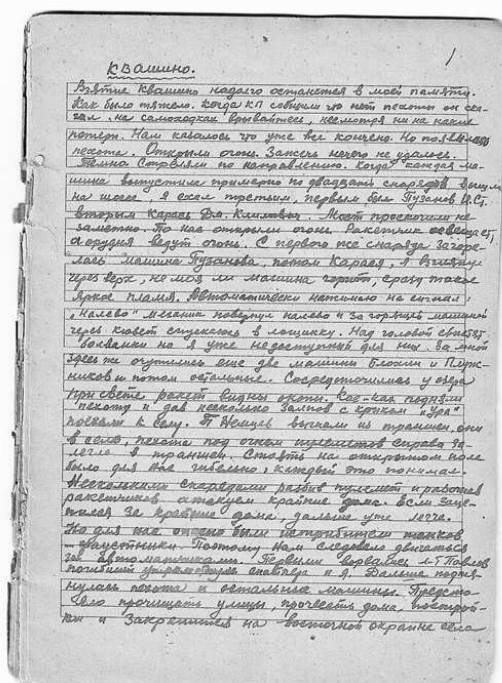 1
Квашино.
Взятие Квашино надолго останется в моей памяти.
Как было тяжело. Когда КП сообщили что нет пехоты он ска-
зал на самоходках врывайтесь, несмотря ни на какие
потери. Нам казалось что уже все кончено. Но появилась
пехота. Открыли огонь. Зажечь нечего не удалось.
Темно стреляли по направлению. Когда каждая ма-
шина выпустила примерно по двадцать снарядов вышли
на шоссе, я ехал третьим, первым был Пузанов И.Ст.
вторым Карась Дм. Климович. Мост проскочили не-
заметно. По нас открыли огонь. Ракетчик освещает,
а орудия ведут огонь. С первого же снаряда загоре-
лась машина Пузанова, потом Карася, я взглянул
через верх, не моя ли машина горит, сразу такое
яркое пламя. Автоматически нажимаю на сигнал:
"налево" механик повернул налево и за горящей машиной
через кювет спускаюсь в лощинку. Над головой свистят
болванки но я уже недоступный для них. За мной
здесь же очутились еще две машины Блохин и Плуж-
ников и потом остальные. Сосредоточились у озера
при свете ракет видны окопы. Кое-как подняли
пехоту и дав несколько залпов с криком "Ура"
поехали к селу. Немцев выгнали из траншеи, они
в село, пехота под огнем пулеметов справа за-
легла в траншеи. Стоять на открытом поле
было для нас гибельно, каждый это понимал.
Несколькими снарядами разбив пулемет и
ракетчиков атакуем крайние дома. Если заце-
пился за крайние дома дальше уже легче.
Но для нас опасно были истребители танков
фаустники. Поэтому нам следовало двигаться
за автоматчиками. Первыми ворвались л-т Павлов
погибший и я. Дальше подтя-
нулась пехота и остальные машины. Предсто-
яло прочищать улицы, прочесть дома построй-
ки и закрепится на восточной окраине села